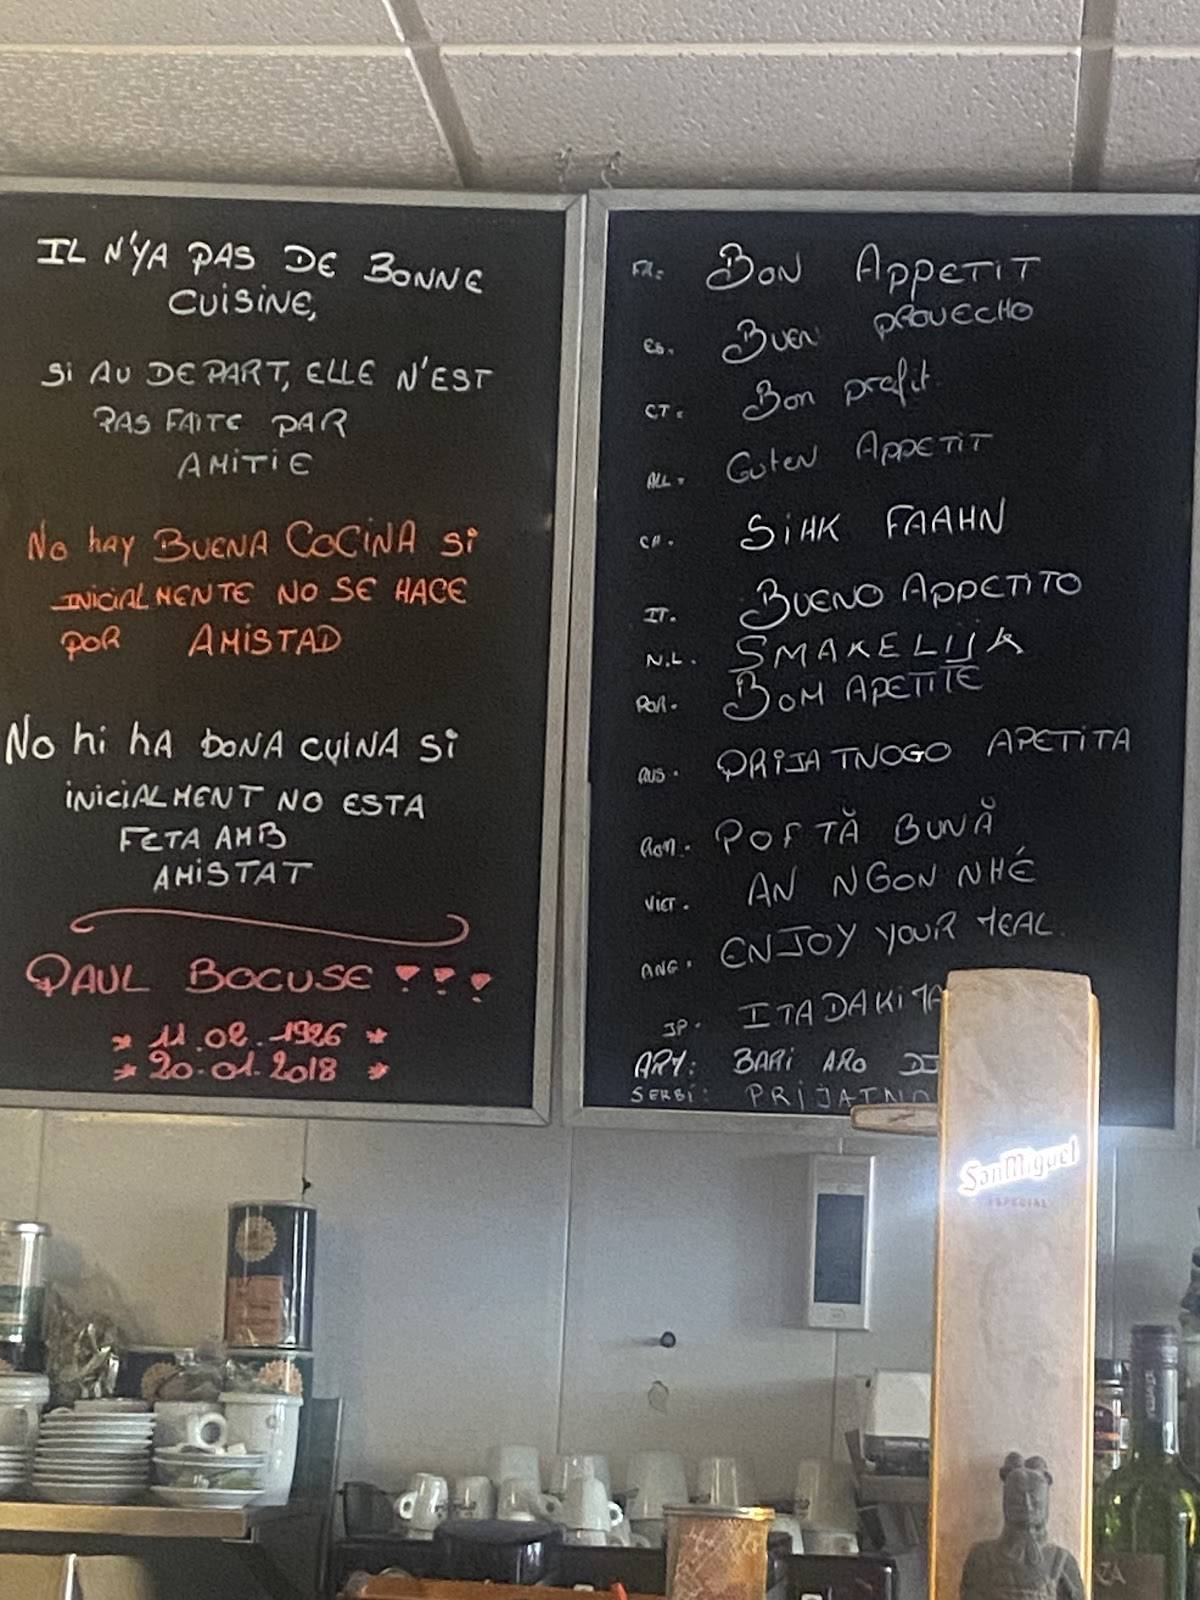 IL N'YA PAS DE BONNE
CUISINE,
SI AU DEPART, ELLE N'EST
PAS FAITE PAR
AMITIE
No hay BUENA COCINA Si
INICIALMENTE NO SE HACE
POR AMISTAD
No hi hA bONA CUINA Si
INICIALMENT NO ESTA
FETA AMB
AMISTAT
PAUL BOCUSE
* 11.02.1926 *
* 20.01.2018 *
FR: BON APPETIT
ES. BUEN PROVECHO
CT: Bon profit.
ALL. GUTEN APPETIT
CH. SIHK FAAHN
IT. BUENO APPETITO
N.L. SMAKELIJK
POR. BOM APETITE
RUS. PRIJATNOGO APETITA
ROM. POFTĂ BUNĂ
VIET. AN NGON NHÉ
ANG. ENJOY YOUR MEAL.
JP. ITADAKIMA
ARM: BARI ARO DJ
SERBI: PRIJATNO
San Miguel
ESPECIAL